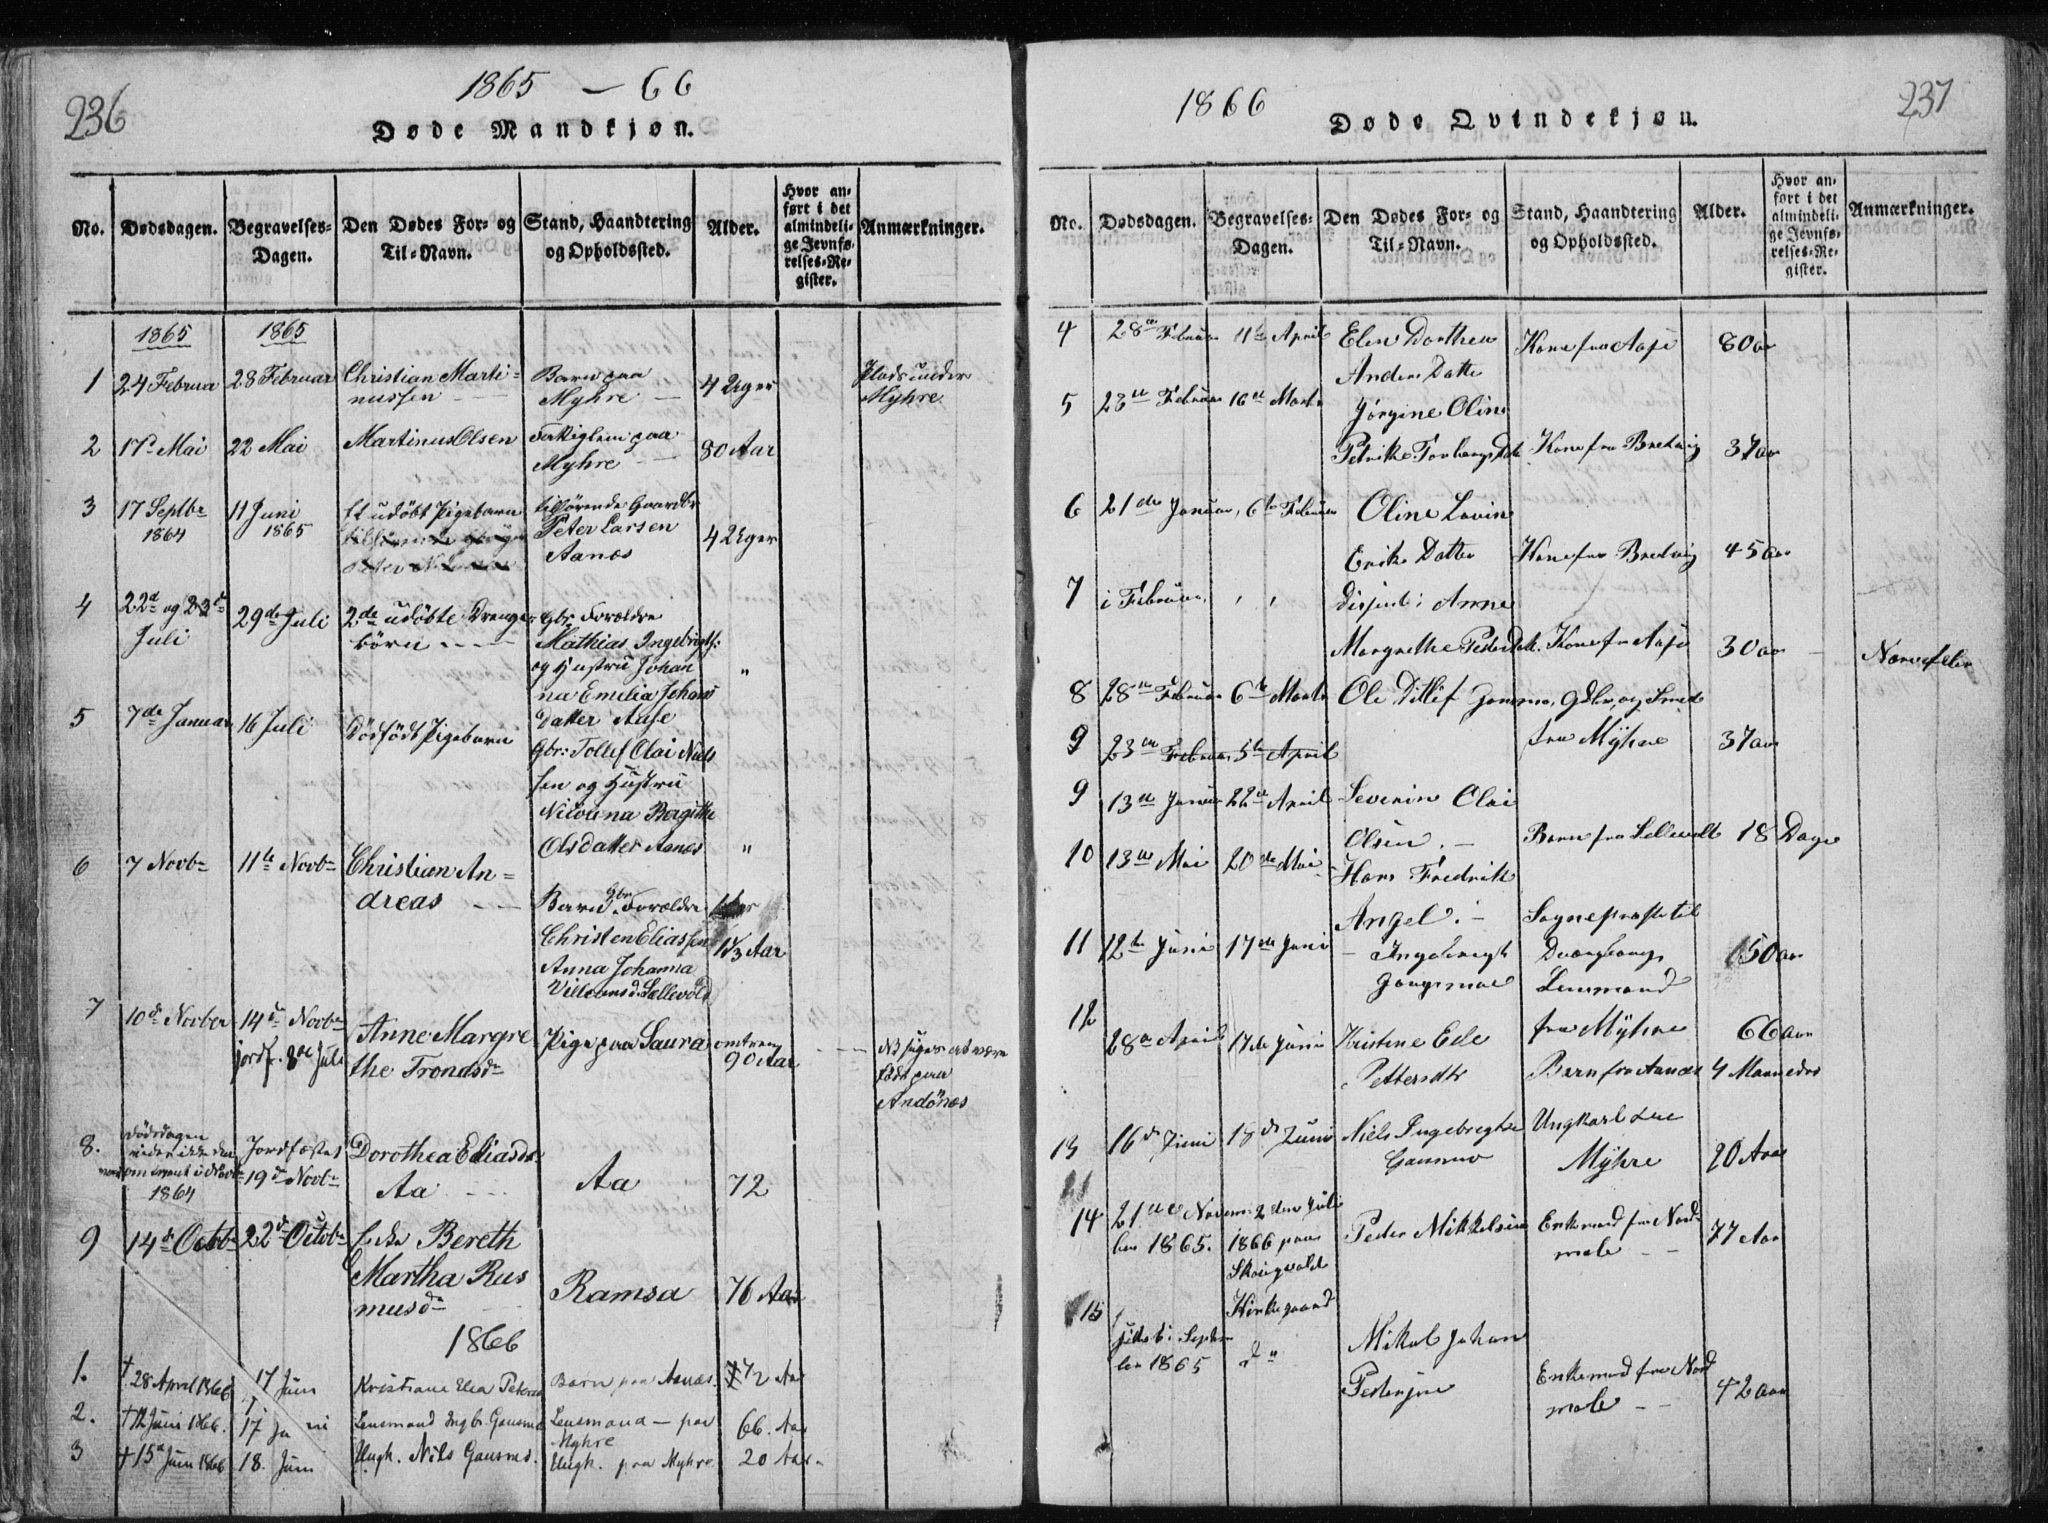 236
1865 – 66
Døde Mandkjøn.
No.
Dødsdagen.
Begravelses-
Dagen.
Den Dødes For- og
Til-Navn.
Stand, Haandtering
og Opholdssted.
Alder.
Hvor an-
ført i det
almindeli-
ge Jevnfø-
relses-Re-
gister.
Anmærkninger.
1865
1865
1
24 Februa
28 Februar
Christian Marti-
nussen
Barn paa
Myhre
4 Uger
Plads under
Myhre
2
17de Mai
22 Mai
Martinus Olsen
paa
Myhre
80 Aar
3
17 Septbr
1864
11 Juni
1865
Et udöbt Pigebarn
tilhörende
Peter Larsen
Aanæs
4 Uger
4
22d og 23d
Juli
29de Juli
2de udöbte Drenge-
börn
Gbr. Forældre
Mathias Ingebrigts:
og Hustru Johan
na Emilia Johans
Datter Aase
"
5
7de Januar
16 Juli
Dödfödt Pigebarn
Gbr: Tollef Olai Niels
sen og Hustru
Nicolina Bergitte
Olsdatter Aanæs
"
6
7 Novbr
11te Novbr
Christian An-
dreas
Barn Gbr Forældre
Christen Eliassen
Anna Johanna
Sellevold
1 1/3 Aar
7
10d Novber
14d Novbr
jordf. 8de Juli
Anne Margre
the Tronds d
Pige paa Saura
omtrent
90 Aar
NB siges at være
födt paa
Andönæs
8.
Dödsdagen
1864
Jordfæstet
19d Novbr
Dorothea Eliasd
Aa
Aa
72
9
14d Octbr
22d October
Enke Bereth
Martha Ras
musd
Ramsa
76 Aar
1866
1.
† 28 April 1866
17 Juni
Kristiane Elea Peters
Barn paa Aanæs.
1/2 Aar
2.
† 12 Juni 1866.
17 Juni
Lensmand Ingbr. Gausm
Lensmand – paa
Myhre
66. Aar
3
† 15d Juni 1866
18. Juni
Ungk. Nils Gausmd.
Ungk. paa Myhre
20 Aar.
1866
Døde Qvindekjøn.
237
No.
Dødsdagen.
Begravelses-
Dagen.
Den Dødes For- og
Til-Navn.
Stand, Haandtering
og Opholdssted.
Alder.
Hvor an-
ført i det
almindeli-
ge Jevnfø-
relses-Re-
gister.
Anmærkninger.
4
28de Februar
11te April
Elen Dorthea
Anders Datter
Kone fra Aase
80 aar
5
23de Februar
16de Marts
Jörgine Oline
Petrike Torbergs Dtr
Kone fra Bredvig
37 aar
6
21de Januar
6te Februar
Oline Lovin
Eriks Datter
Kone fra Bredvig
45 aar
7
i Februar
, ,
Anne
Margrethe Peders Dtr.
Kone fra Aase
30 aar
Nervefeber
8
28de Februar
6te Marts
Ole Ditlef
og Smed
fra Myhre
37 aar
9
23de Februar
5te April
9
13de Januar
22de April
Severin Olai
Olsen. –
Barn fra Sellevold
18 Dage
10
13de Mai
20de Mai
Hans Fredrik
Angel. –
Sogneprest til
Dverberg
50 aar
11
12te Juni
17de Juni
Ingebrigt
Lensmand
fra Myhre
66 aar
12
28de April
17de Juni
Kristine Ele
Pettersdtr
Barn fra Aanæs
4 Maaneder
13
16d Juni
18d Juni
Niels Ingebregtse
Ungkarl
Myhre
20 Aar
14
21de Novem-
ber 1865.
2den Juli
1866 paa
Skougvolds
Kirkegaard
Peder Mikkelsen
Enkemand fra Nord-
mele
77 Aar
15
Septem
ber 1865
d"
Mikal Johan
Enkemand fra Nord
mele
42 aar